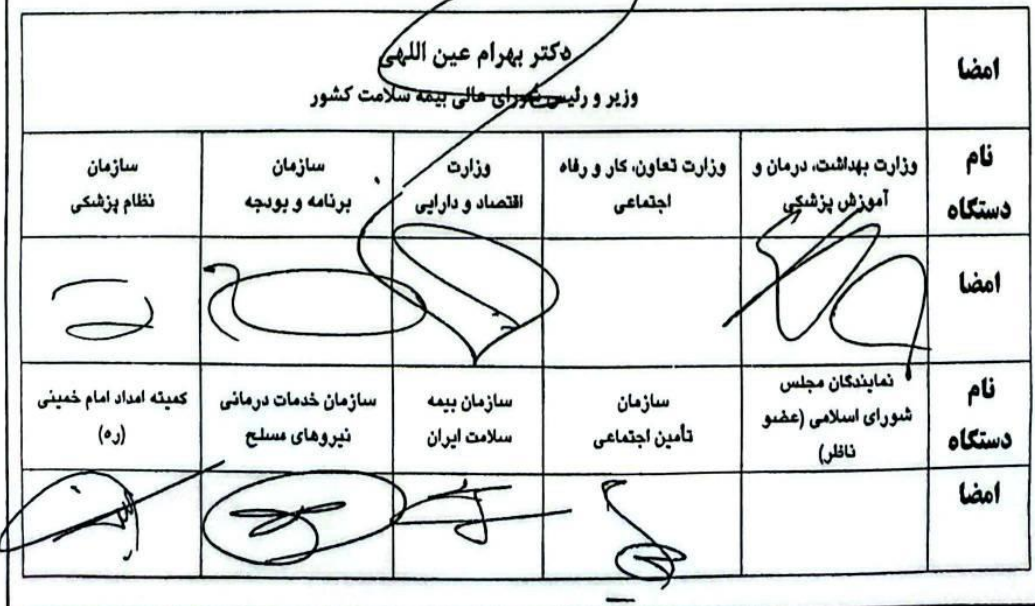 امضا
دکتر بهرام عین اللهی
وزیر و رئیس شورای عالی بیمه سلامت کشور
نام دستگاه
وزارت بهداشت، درمان و
آموزش پزشکی
وزارت تعاون، کار و رفاه
اجتماعی
وزارت
اقتصاد و دارایی
سازمان
برنامه و بودجه
سازمان
نظام پزشکی
امضا
نام دستگاه
نمایندگان مجلس
شورای اسلامی (عضو
ناظر)
سازمان
تأمین اجتماعی
سازمان بیمه
سلامت ایران
سازمان خدمات درمانی
نیروهای مسلح
کمیته امداد امام خمینی
(ره)
امضا